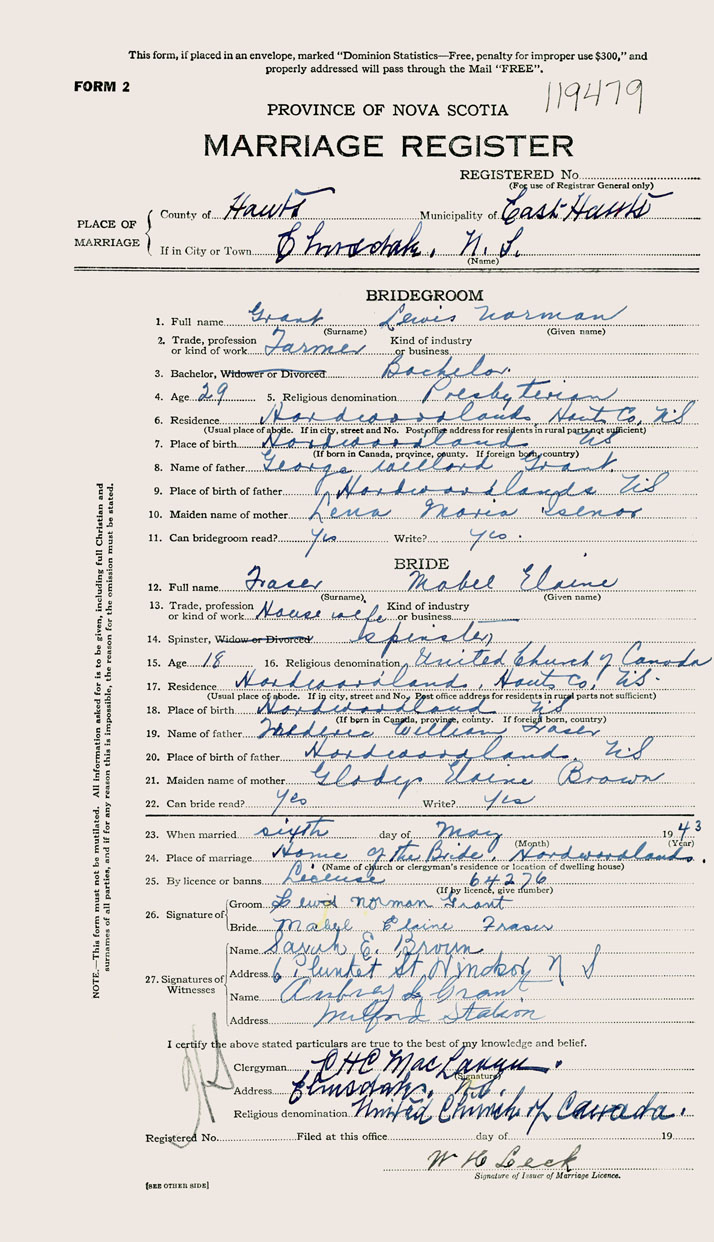 This form, if placed in an envelope, marked "Dominion Statistics—Free, penalty for improper use $300," and
properly addressed will pass through the Mail "FREE".
FORM 2
119479
PROVINCE OF NOVA SCOTIA
MARRIAGE REGISTER
REGISTERED No
(For use of Registrar General only)
PLACE OF MARRIAGE
County of Hants Municipality of East Hants
If in City or Town Elmsdale, N. S.
(Name)
BRIDEGROOM
1. Full name Grant Lewis Norman
(Surname) (Given name)
2. Trade, profession or kind of work Farmer Kind of industry or business
3. Bachelor, Widower or Divorced Bachelor.
4. Age 29 5. Religious denomination Presbyterian
6. Residence Hardwoodlands, Hants Co, NS
(Usual place of abode. If in city, street and No. Post office address for residents in rural parts not sufficient)
7. Place of birth Hardwoodlands NS
(If born in Canada, province, county. If foreign born, country)
8. Name of father George Willard Grant
9. Place of birth of father Hardwoodlands NS
10. Maiden name of mother Lena Maria Isenor
11. Can bridegroom read? Yes Write? Yes.
BRIDE
12. Full name Fraser Mabel Elaine
(Surname) (Given name)
13. Trade, profession or kind of work Housewife Kind of industry or business
14. Spinster, Widow or Divorced Spinster
15. Age 18 16. Religious denomination United Church of Canada
17. Residence Hardwoodland, Hants Co, NS.
(Usual place of abode. If in city, street and No. Post office address for residents in rural parts not sufficient)
18. Place of birth Hardwoodland NS
(If born in Canada, province, county. If foreign born, country)
19. Name of father Frederic William Fraser
20. Place of birth of father Hardwoodland. NS
21. Maiden name of mother Gladys Elaine Brown
22. Can bride read? Yes Write? Yes
23. When married sixth day of May 1943
(Month) (Year)
24. Place of marriage Home of the Bride, Hardwoodlands.
(Name of church or clergyman's residence or location of dwelling house)
25. By licence or banns License 64276
(If by licence, give number)
26. Signature of
Groom Lewis Norman Grant
Bride Mabel Elaine Fraser
27. Signatures of Witnesses
Name Sarah E. Brown
Address 6 Plunket St Windsor N S
Name Aubrey L Grant
Address Milford Station
I certify the above stated particulars are true to the best of my knowledge and belief.
Clergyman CHC MacLaren.
(Signature)
Address Elmsdale, N.S.
Religious denomination United Church of Canada.
Registered No. Filed at this office day of 19
W H Leck
Signature of Issuer of Marriage Licence.
[SEE OTHER SIDE]
NOTE.—This form must not be mutilated. All information asked for is to be given, including full Christian and
surnames of all parties, and if for any reason this is impossible, the reason for the omission must be stated.